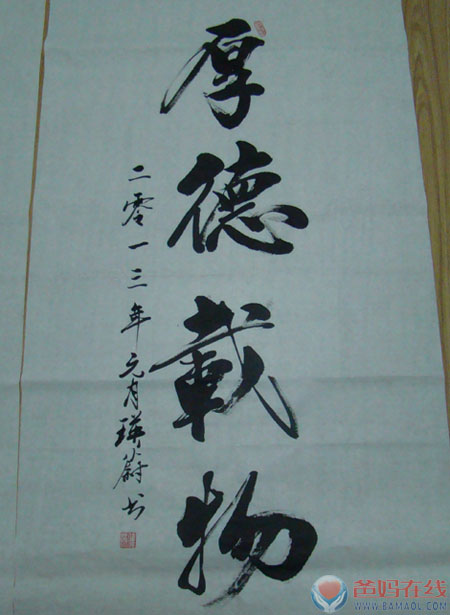 厚德載物
二零一三年元月瑛蔚书
爸妈在线
WWW.BAMAOL.COM